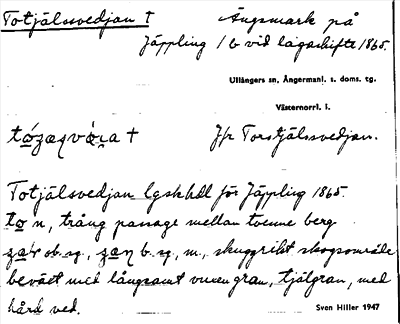 Totjälsvedjan †
Ängsmark på
Jäppling 1 b vid lagaskifte 1865.
Ullångers sn, Ångermanl. s. doms. tg.
Västernorrl. l.
Jfr Torstjälsvedjan.
Totjälsvedjan lgskhdl för Jäppling 1865.
to n, trång passage mellan tvenne berg
ob. sg., b. sg., m., skuggrikt skogsområde
beväxt med långsamt vuxen gran, tjälgran, med
hård ved.
Sven Hiller 1947